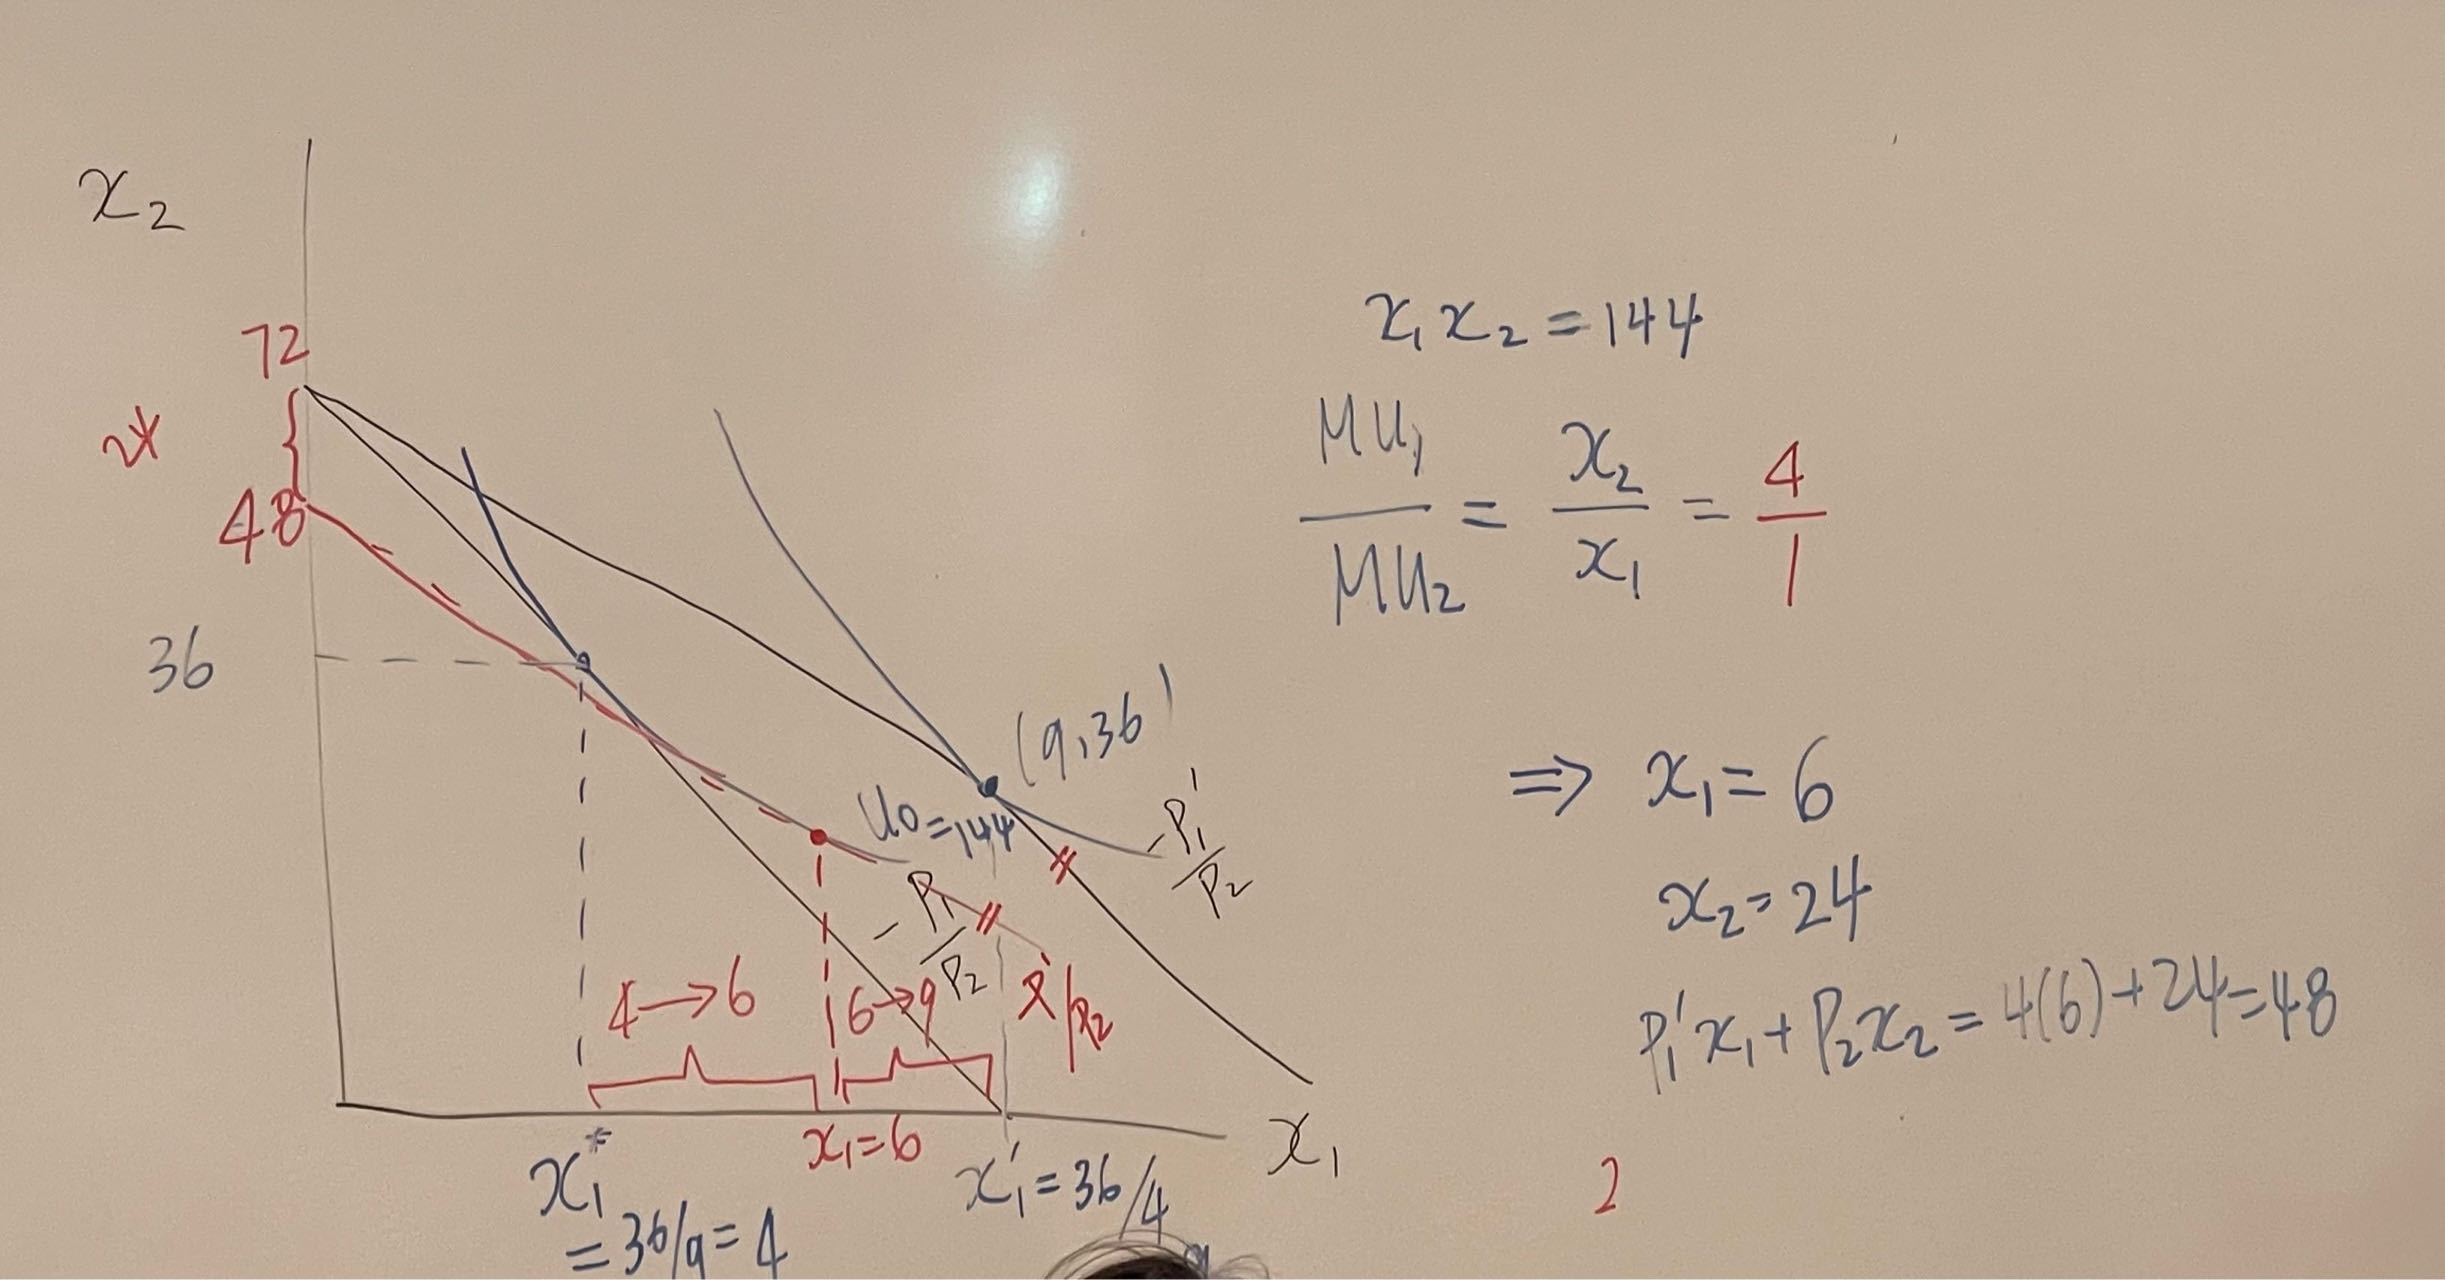 x₂
72
24
48
36
(9,36)
U₀=144
-P₁'/P₂
-P₁/P₂
4→6
6→9
P₁'/P₂
x₁=6
x₁
x₁*
=36/9=4
x₁'=36/4
x₁x₂=144
MU₁/MU₂ = x₂/x₁ = 4/1
⇒ x₁=6
x₂=24
P₁'x₁+P₂x₂=4(6)+24=48
2